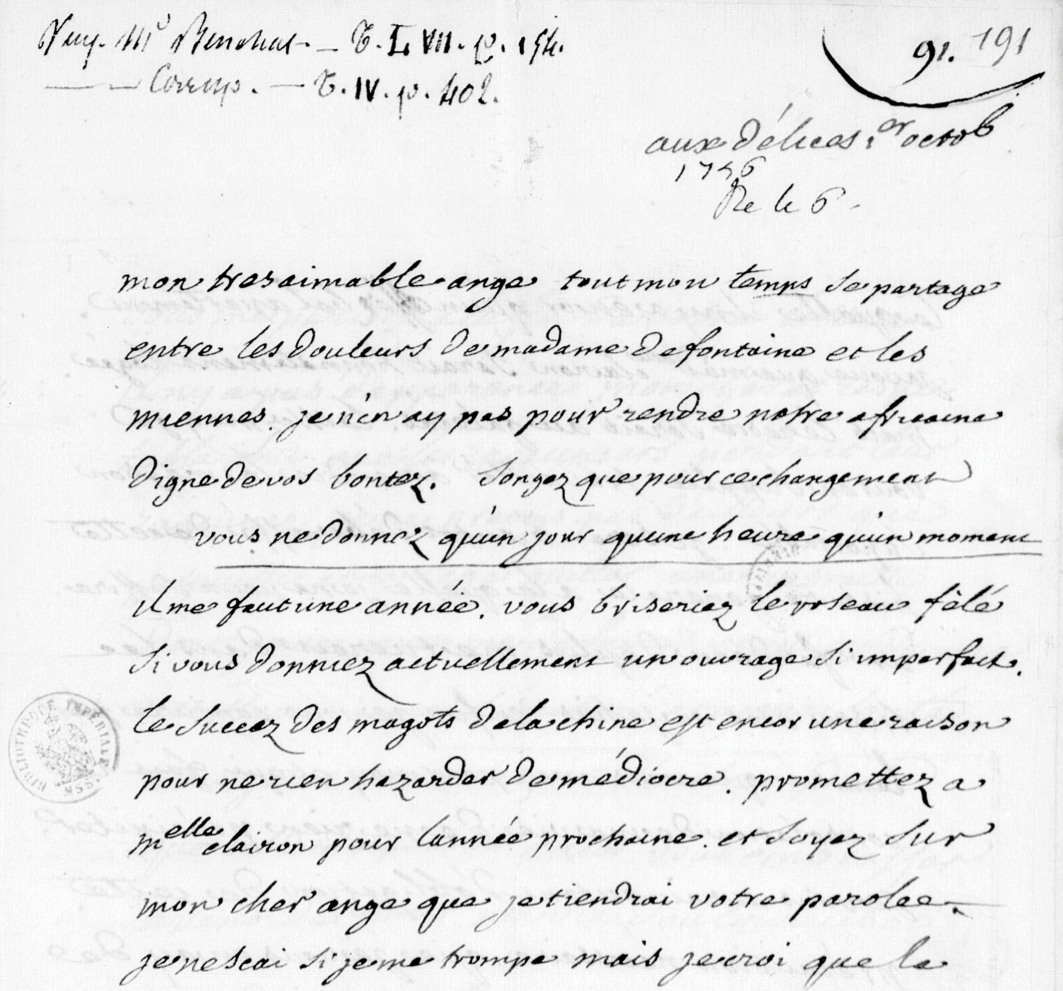 T. LVII. p. 154.
91. 191
Corresp. — T. IV. p. 402.
aux délices 1er octob
1756
Re le 6
mon tres aimable ange tout mon temps se partage
entre les douleurs de madame de fontaine et les
miennes. je n'en ay pas pour rendre notre africaine
digne de vos bontez. Songez que pour ce changement
vous ne donnez qu'un jour qu'une heure qu'un moment
il me faut une année. vous briseriez le roseau fêlé
si vous donniez actuellement un ouvrage si imparfait.
le succez des magots de la chine est encor une raison
pour ne rien hazarder de médiocre. promettez a
melle clairon pour lannée prochaine. et soyez sur
mon cher ange que je tiendrai votre parole.
je ne scai si je me trompe mais je croi que le
BIBLIOTHEQUE IMPERIALE MSS.